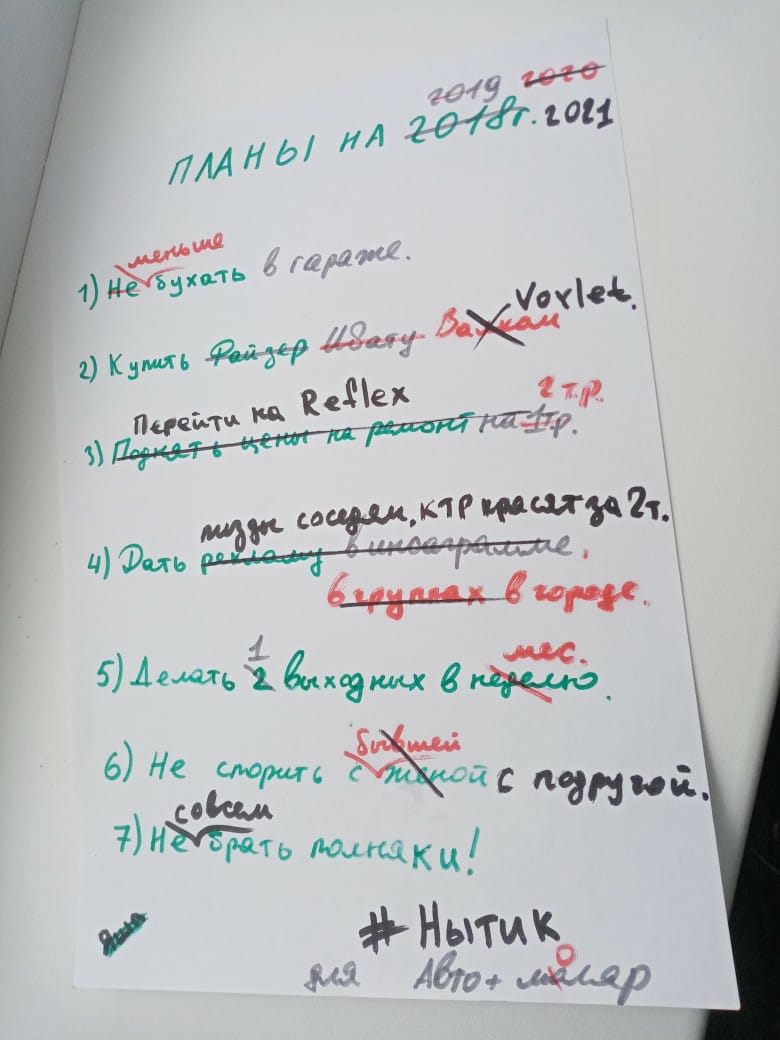 2019 2020
ПЛАНЫ НА 2018г. 2021
меньше
1) Не бухать в гараже.
Vorlek.
2) Купить Файзер Ивату Вайкам
Перейти на Reflex 2 т.р.
3) Поднять цены на ремонт на 1т.р.
пизды соседям, КТР красят за 2т.
4) Дать рекламу в инстаграмме,
в группах в городе.
1 мес.
5) Делать 2 выходных в неделю.
бывшей
6) Не спорить с женой с подругой.
совсем
7) Не брать полняки!
#Нытик
о
для Авто+ маляр